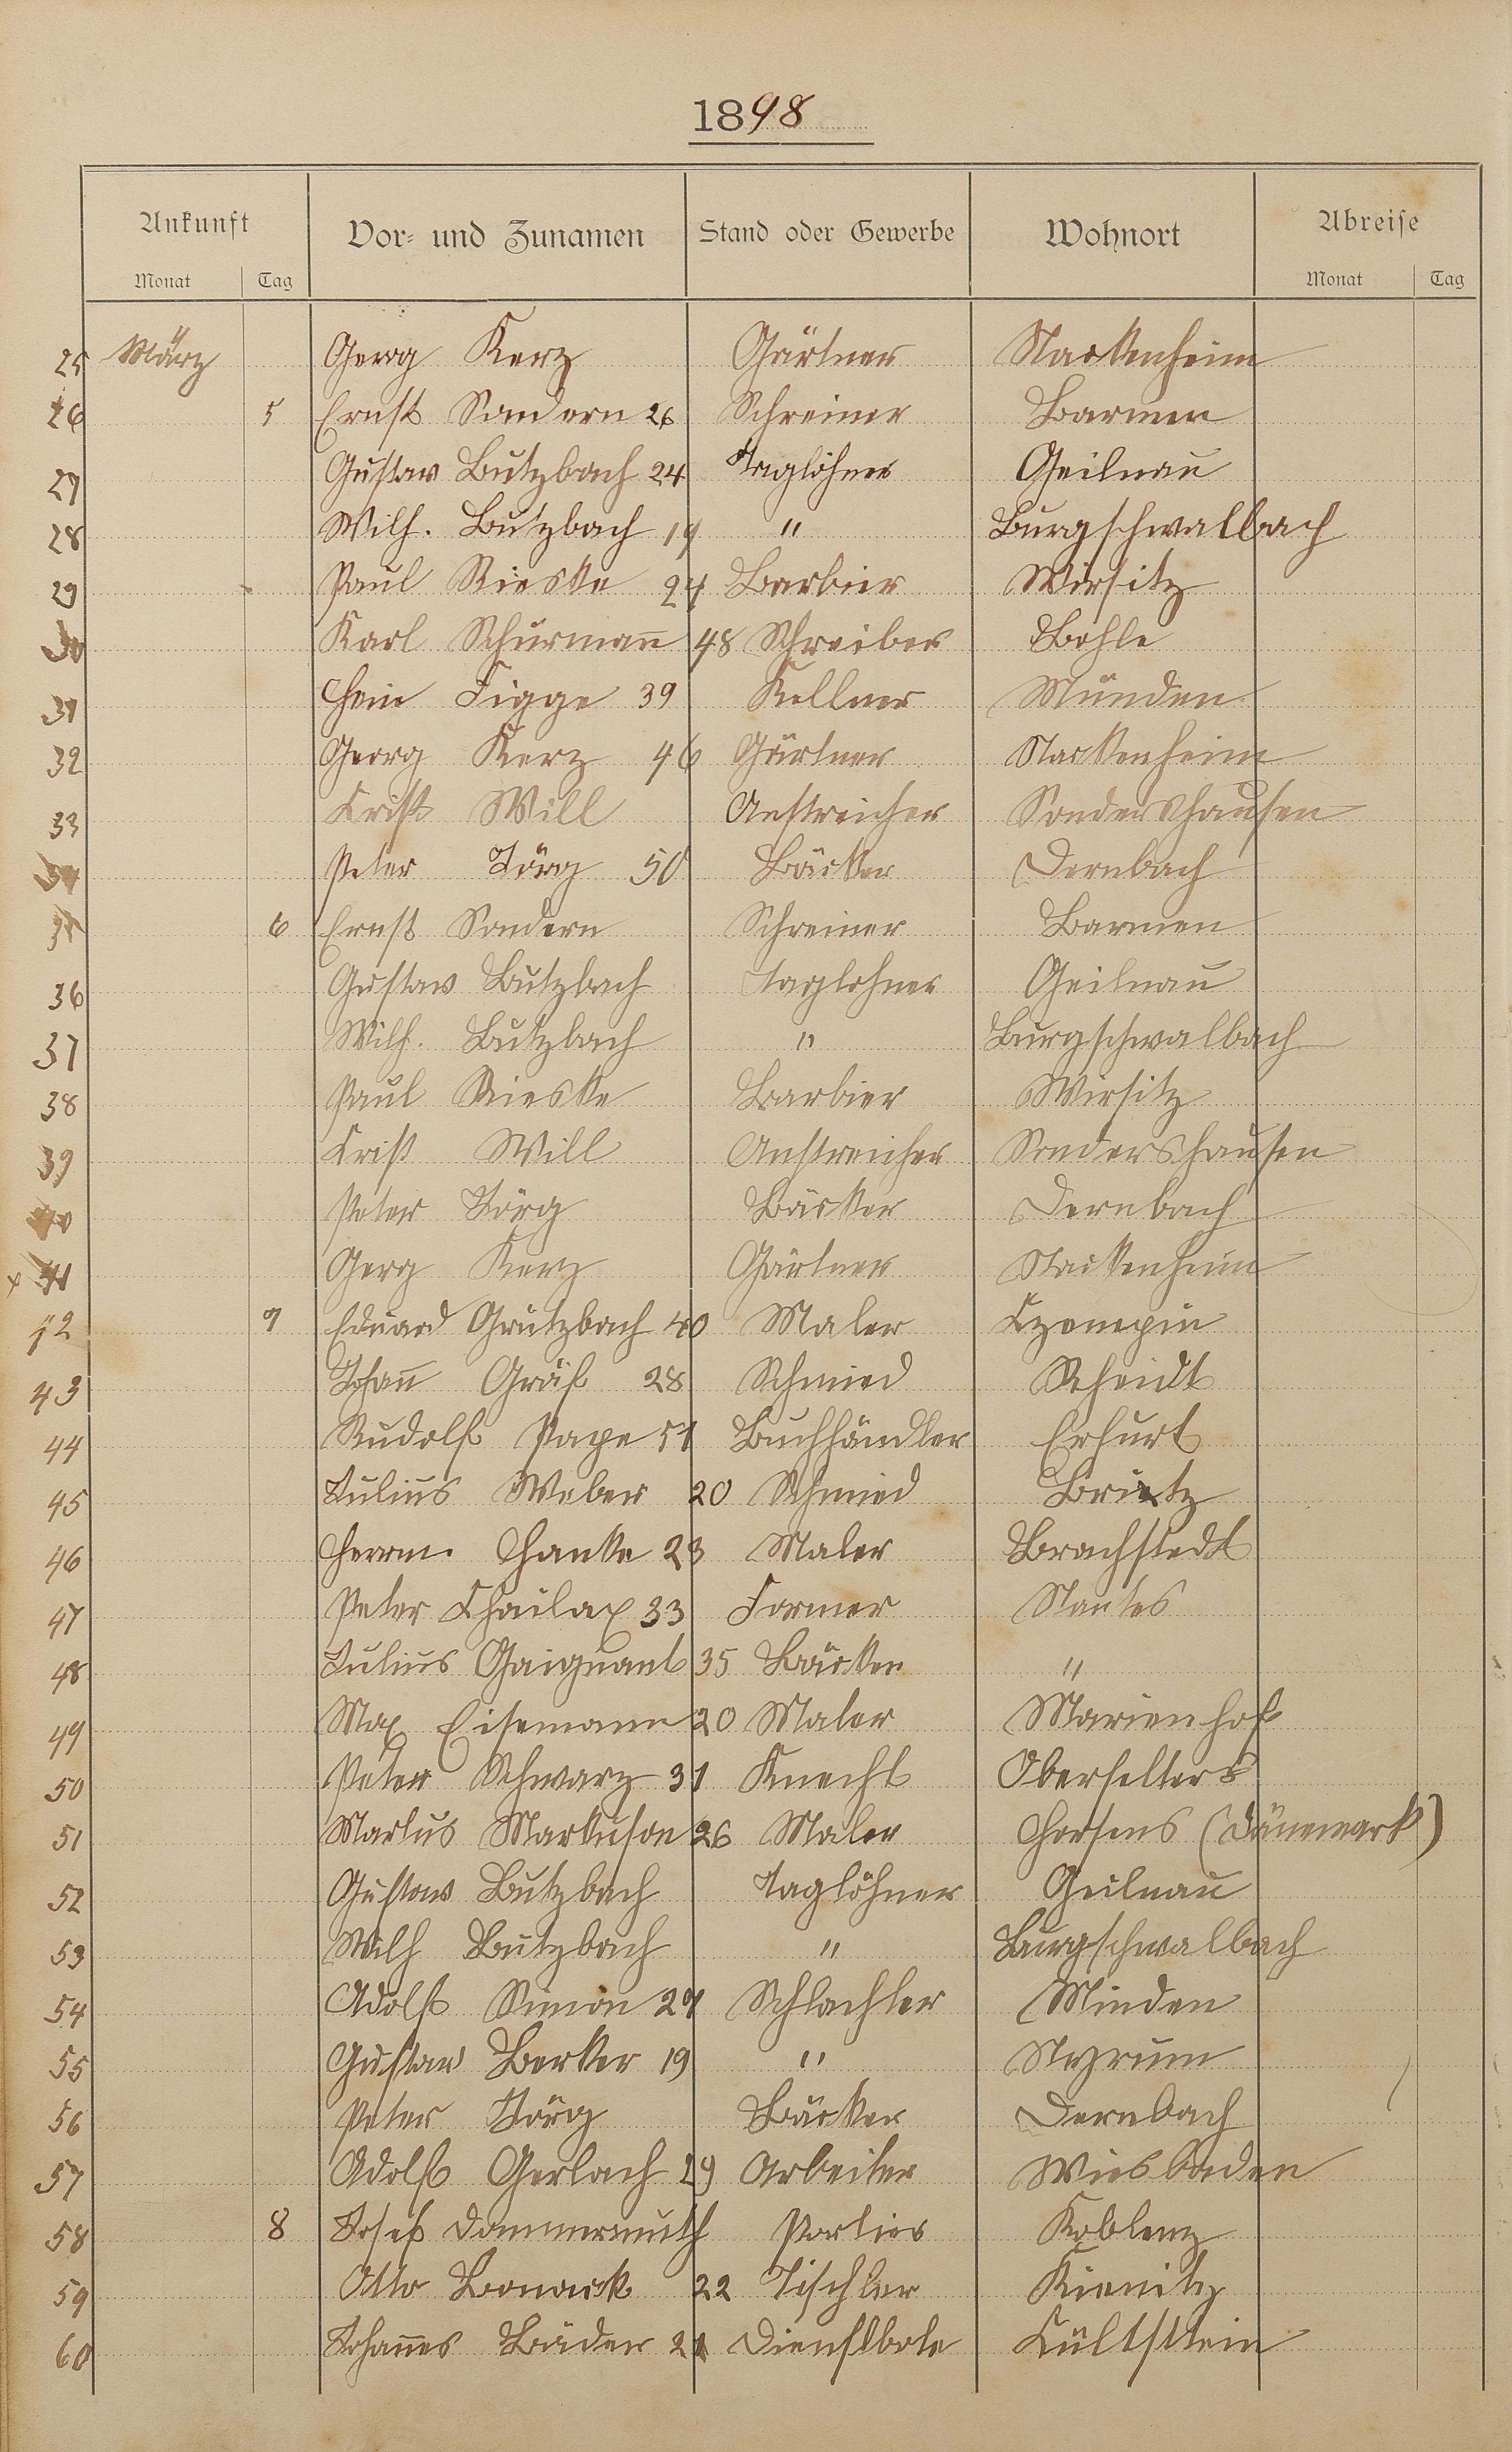 1898
Ankunft Vor- und Zunamen Stand oder Gewerbe Wohnort Abreise
Monat Tag Monat Tag
25 März Georg Kerz Gärtner Nackenheim
26 5 Ernst Sondern 26 Schreiner Barmen
27 Gustav Butzbach 24 Taglöhner Geilnau
28 Wilh. Butzbach 19 " Burgschwalbach
29 Paul Rieske 24 Barbier Wirsitz
30 Karl Schürmann 48 Schreiber Bohle
31 Hein Figge 39 Kellner Münden
32 Georg Kerz 46 Gärtner Nackenheim
33 Krist Will Anstreicher Sondershausen
34 Peter Jörg 50 Bäcker Dernbach
35 6 Ernst Sondern Schreiner Barmen
36 Gustav Butzbach Taglohner Geilnau
37 Wilh. Butzbach " Burgschwalbach
38 Paul Rieske Barbier Wirsitz
39 Krist Will Anstreicher Sondershausen
40 Peter Jörg Bäcker Dernbach
x 41 Gerg Kerz Gärtner Nackenheim
42 7 Eduard Grützbach 40 Maler Czempin
43 Johann Gräf 28 Schmied Scheidt
44 Rudolf Pape 51 Buchhändler Erfurt
45 Julius Weber 20 Schmied Britz
46 Herrm. Hanke 23 Maler Brachstedt
47 Peter 33 Former Nantes
48 Julius 35 Bäcker "
49 Max Eisemann 20 Maler Marienhof
50 Peter Schwarz 31 Knecht Oberselters
51 Markus Markuson 26 Maler Horsens (Dänemark)
52 Gustav Butzbach Taglöhner Geilnau
53 Wilh Butzbach " Burgschwalbach
54 Adolf Simon 27 Schlachter Minden
55 Gustav Berker 19 " Styrum
56 Peter Jörg Bäcker Dernbach
57 Adolf Gerlach 29 Arbeiter Wiesbaden
58 8 Josef Dommermuth Portier Koblenz
59 Otto Bonack 22 Tischler Kienitz
60 Johannes Bäder 21 Dienstbote